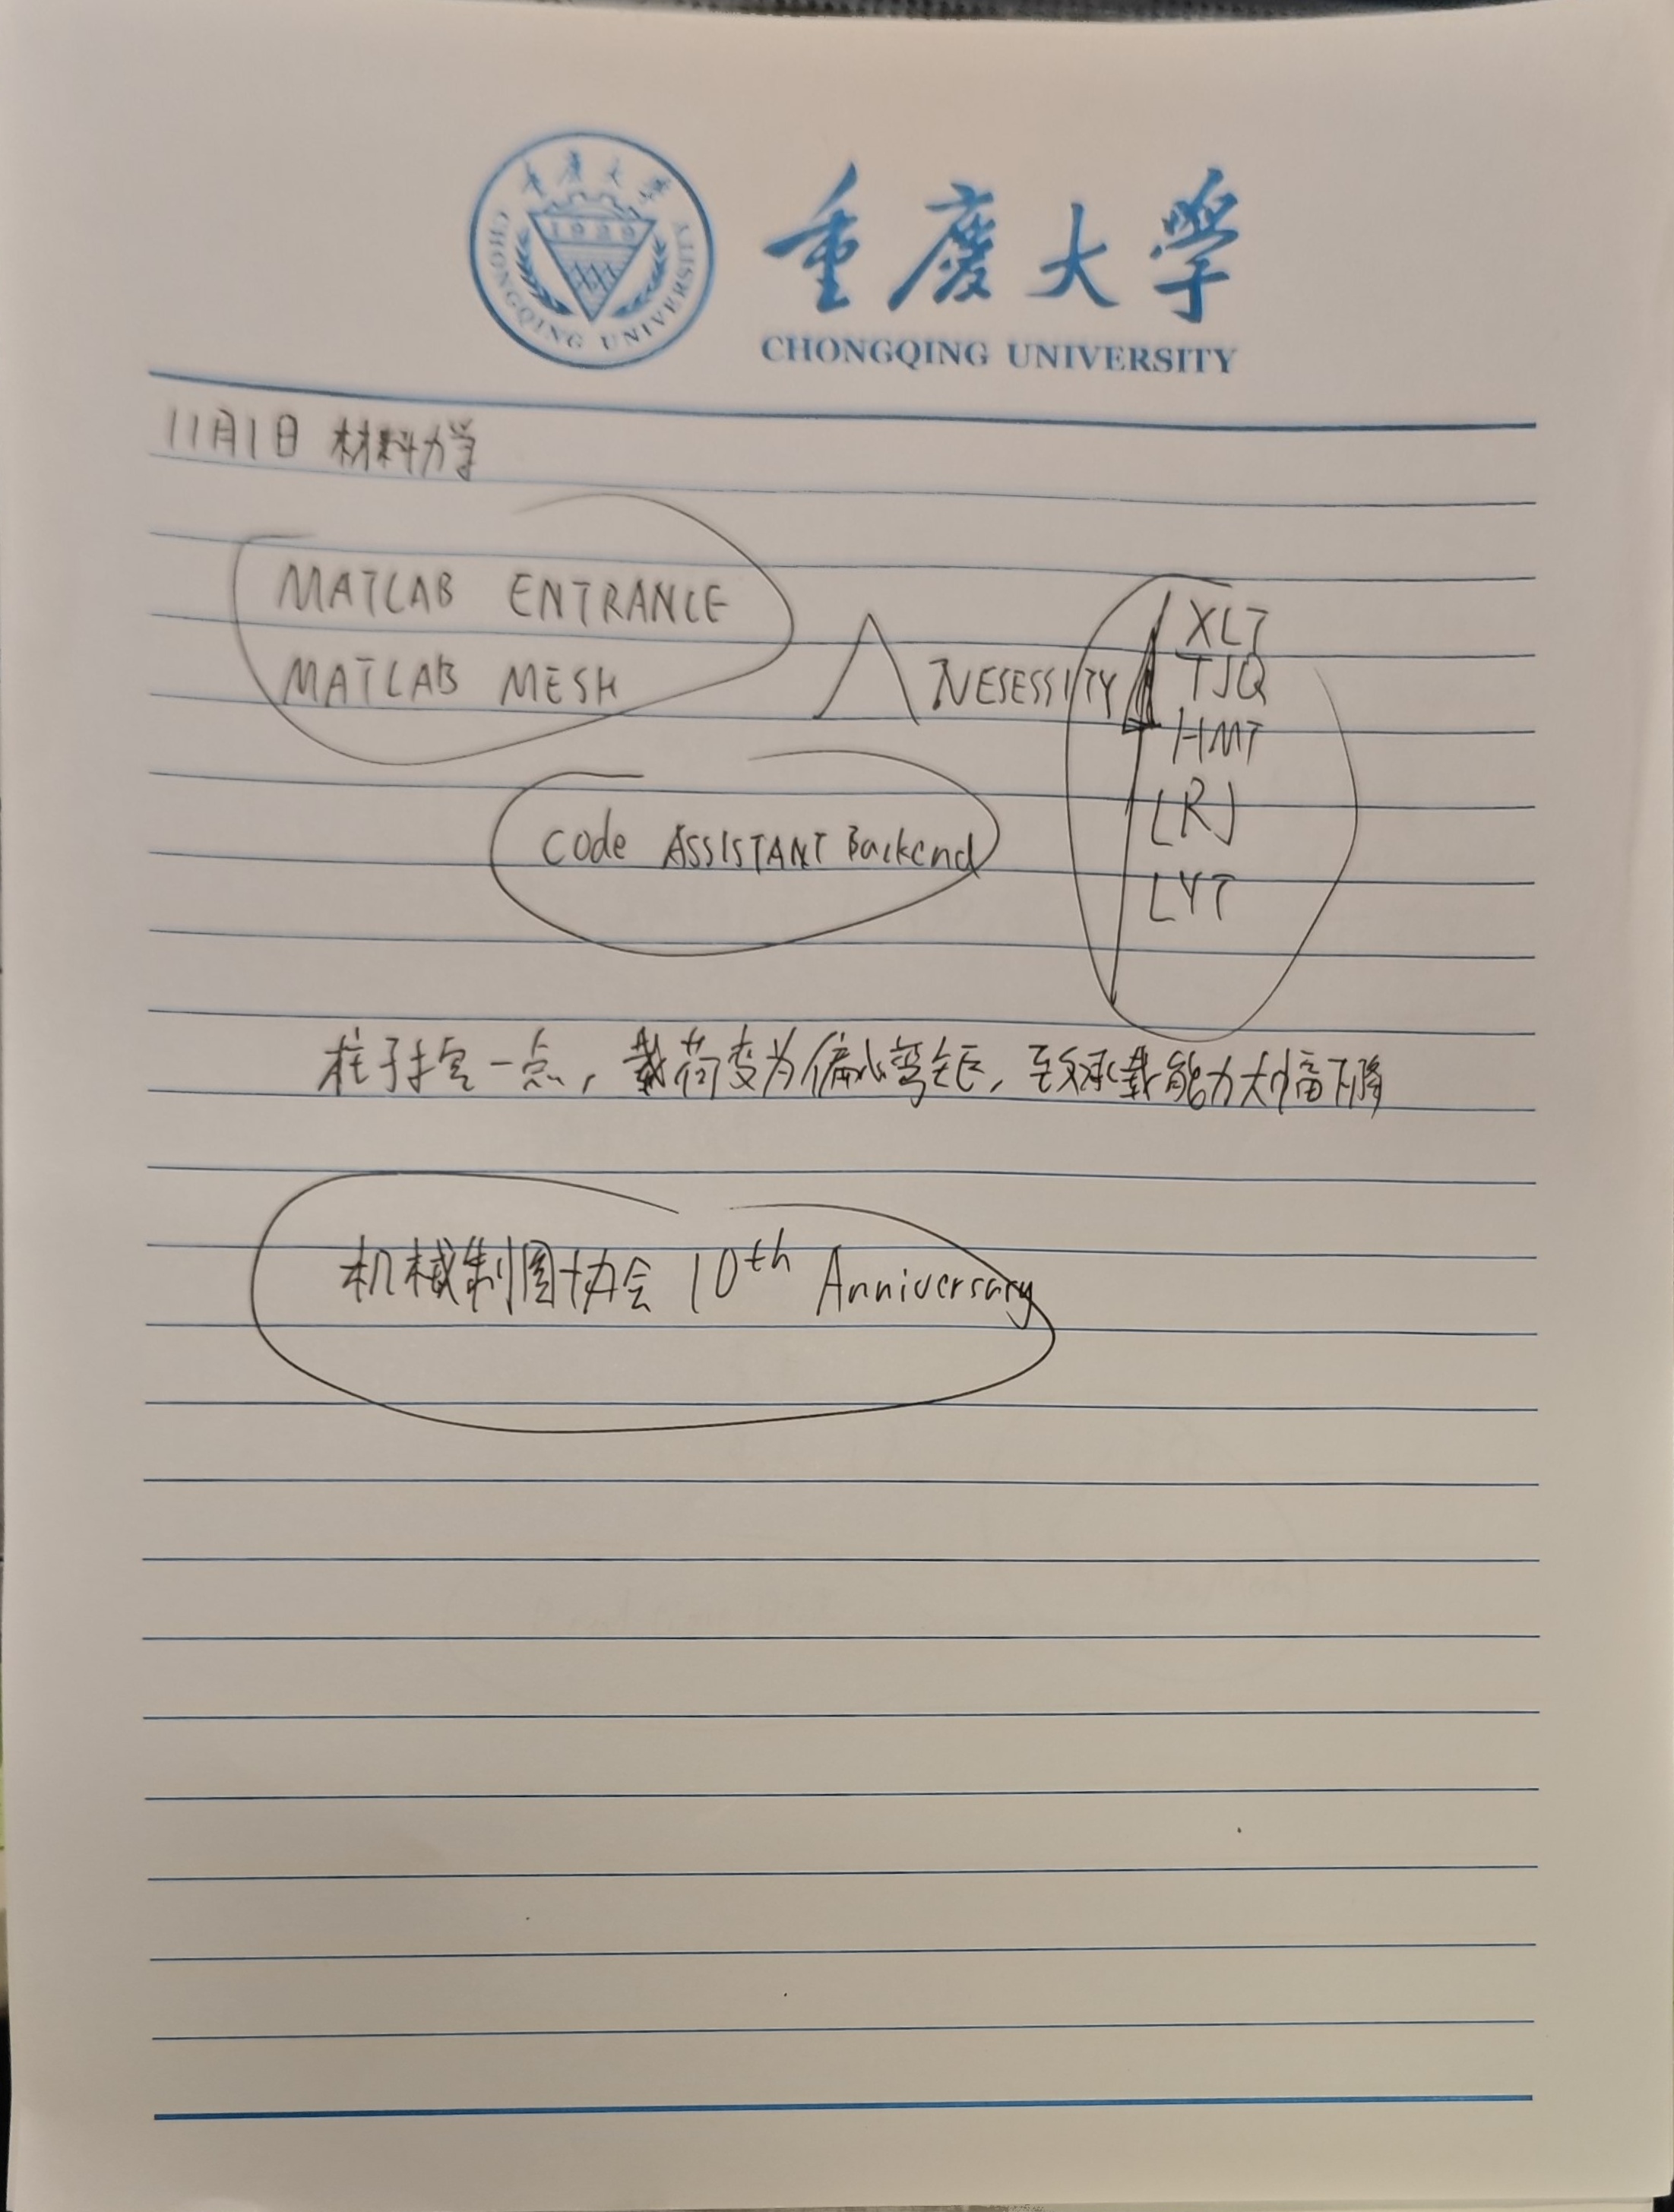 重庆大学
1929
CHONGQING UNIVERSITY
重慶大學
CHONGQING UNIVERSITY
11月1日 材料力学
MATLAB ENTRANCE
MATLAB MESH
NESESSITY
XLT
TJQ
HMT
LRJ
LYT
Code ASSISTANT Backend
柱子挖一点,载荷变为偏心弯矩,至承载能力大幅下降
机械制图协会 10th Anniversary